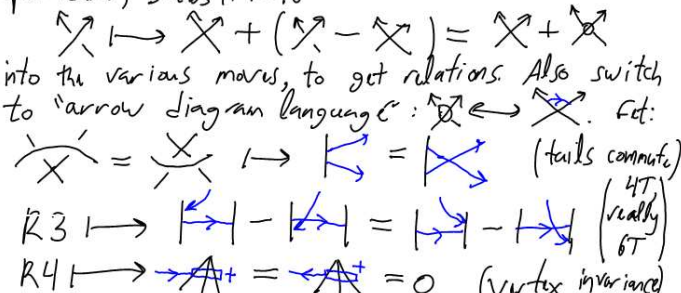 ⟼ + ( − ) = +
into the various moves, to get relations. Also switch
to "arrow diagram language": ⟷ . Get:
= ⟼ = (tails commute)
R3 ⟼ − = − (4T, really 6T)
R4 ⟼ + = + = 0 (vertex invariance)